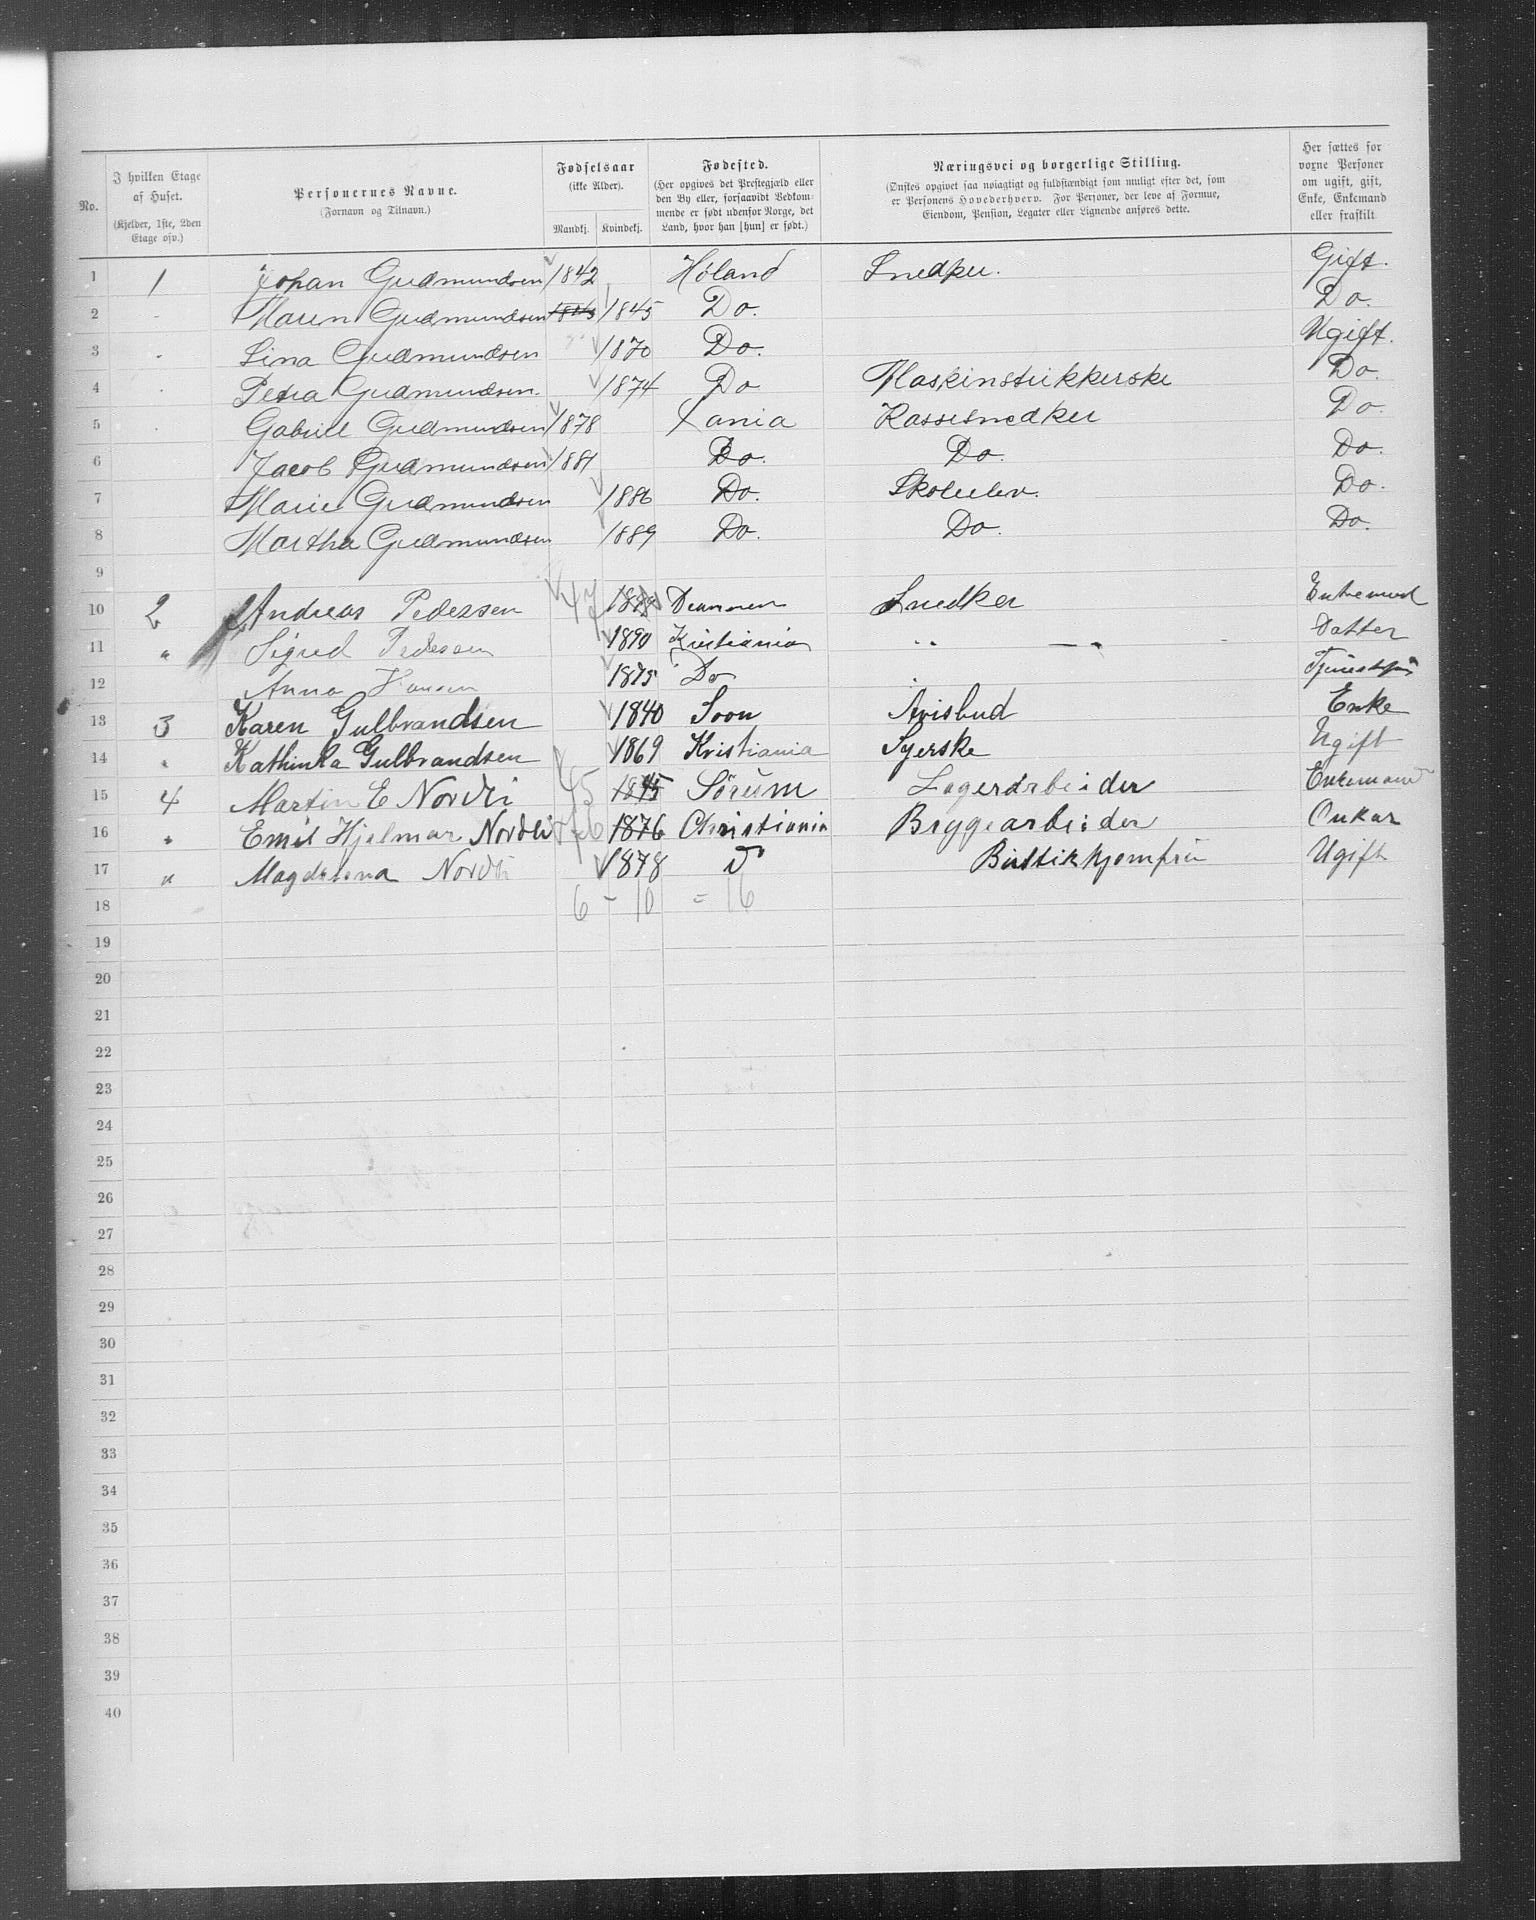 No. | I hvilken Etage af Huset. (Kjelder, 1ste, 2den Etage osv.) | Personernes Navne. (Fornavn og Tilnavn.) | Fødselsaar (ikke Alder). Mandkj. | Kvindekj. | Fødested. (Her opgives det Prestegjæld eller den By eller, forsaavidt Vedkommende er født udenfor Norge, det Land, hvor han [hun] er født.) | Næringsvei og borgerlige Stilling. (Ønskes opgivet saa nøiagtigt og fuldstændigt som muligt efter det, som er Personens Hovederhverv. For Personer, der leve af Formue, Eiendom, Pension, Legater eller Lignende anføres dette.) | Her sættes for voxne Personer om ugift, gift, Enke, Enkemand eller fraskilt
1 | 1 | Johan Gudmundsen | 1842 | | Høland | Snedker. | Gift.
2 | - | Maren Gudmundsen | | 1845 | Do. | | Do.
3 | . | Lina Gudmundsen | | 1870 | Do. | | Ugift.
4 | . | Petra Gudmundsen. | | 1874 | Do | Maskinstrikkerske | Do.
5 | . | Gabriel Gudmundsen | 1878 | | Xania | Kassesnedker | Do.
6 | | Jacob Gudmundsen | 1881 | | Do. | Do. | Do.
7 | | Marie Gudmundsen | | 1886 | Do. | Skoleelev. | Do.
8 | | Martha Gudmundsen | | 1889 | Do. | Do. | Do.
9
10 | 2 | Andreas Pedersen | 47 | | Drammen | Snedker | Enkemand
11 | " | Sigrid Pedersen | | 1890 | Kristiania | " — " | Datter
12 | | Anna Hansen | | 1875 | Do | |
13 | 3 | Karen Gulbrandsen | | 1840 | Soon | Avisbud | Enke
14 | " | Kathinka Gulbrandsen | | 1869 | Kristiania | Syerske | Ugift
15 | 4 | Martin E Nordli | 45 | 1845 | Sørum | Lagerarbeider | Enkemand
16 | " | Emil Hjalmar Nordli | 76 | 1876 | Christiania | Bryggearbeider | Onkar
17 | " | Magdalena Nordli | | 1878 | D | Buttikkjomfru | Ugift
18 | | | 6 - | 10 | = 16
19
20
21
22
23
24
25
26
27
28
29
30
31
32
33
34
35
36
37
38
39
40